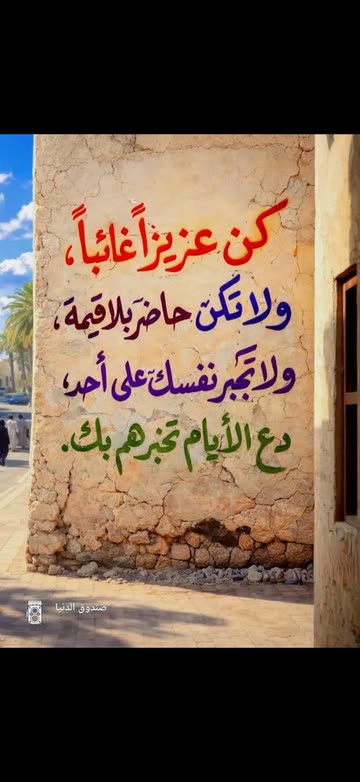 كن عزيزاً غائباً،
ولا تكن حاضر بلا قيمة،
ولا تجبر نفسك على أحد،
دع الأيام تخبرهم بك.
صندوق الدنيا